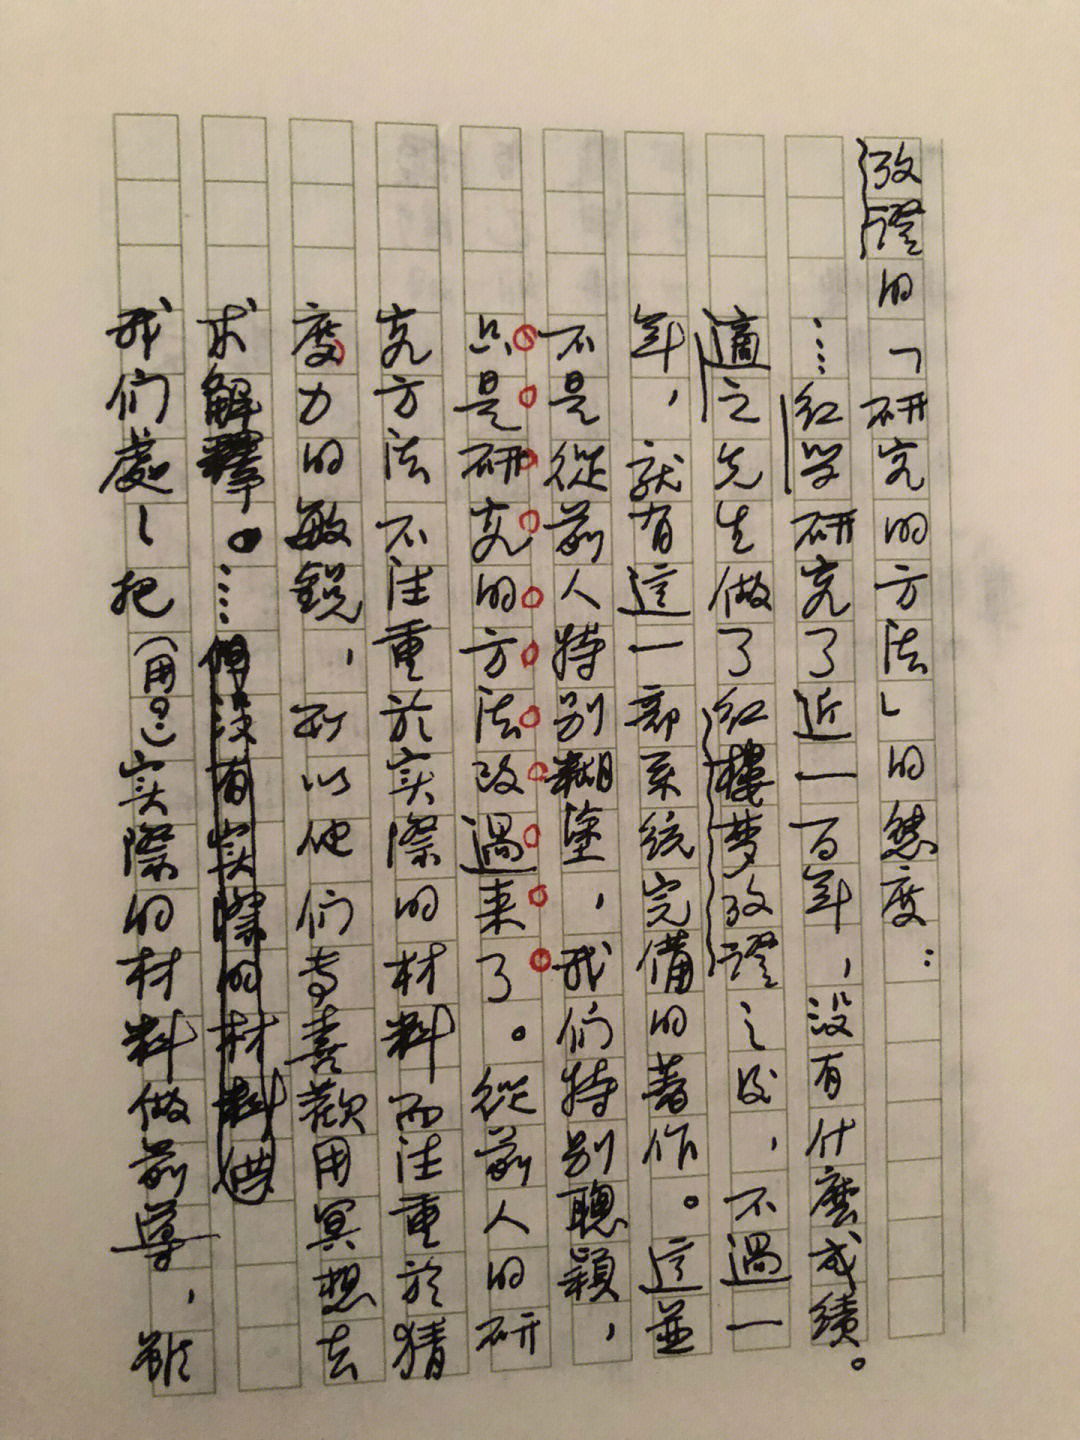 攷證的「研究的方法」的態度：
……红学研究了近一百年，没有什麼成績。
適之先生做了红樓夢攷證之后，不過一
年，就有這一部系统完備的著作。這並
不是從前人特别糊塗，我们特别聰穎，
只是研究的方法改過来了。從前人的研
究方法不注重於实際的材料而注重於猜
度力的敏銳，所以他们专喜歡用冥想去
求解釋。……但没有实際的材料供
我们處〻把（用？）实際的材料做前導，雖